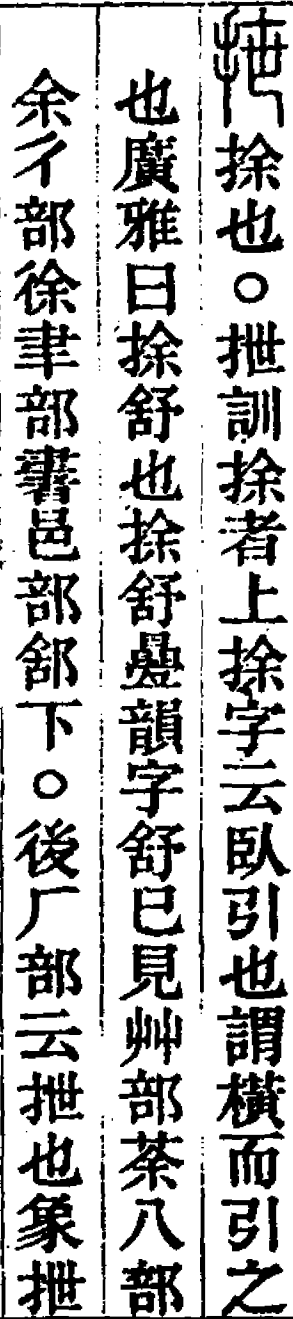 抴捈也○抴訓捈者上捈字云臥引也謂橫而引之
也廣雅曰捈舒也捈舒疊韻字舒已見艸部荼八部
余彳部徐聿部書邑部䣄下○後厂部云抴也象抴